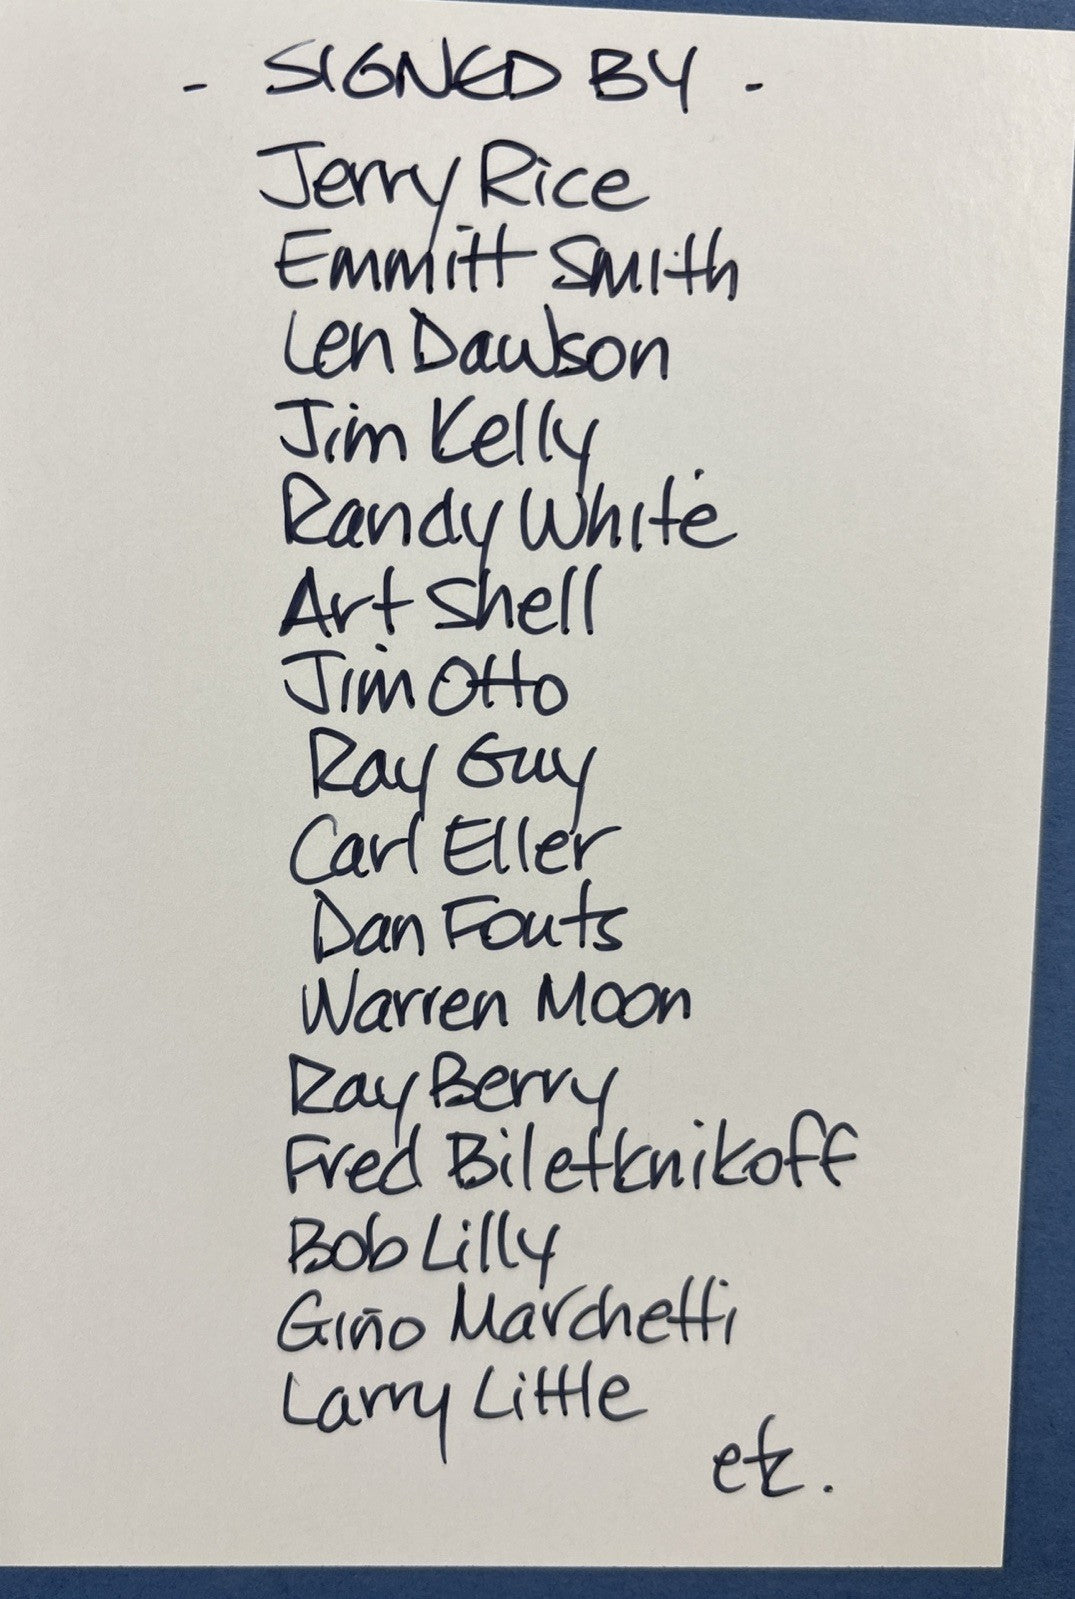 - SIGNED BY -
Jerry Rice
Emmitt Smith
Len Dawson
Jim Kelly
Randy White
Art Shell
Jim Otto
Ray Guy
Carl Eller
Dan Fouts
Warren Moon
Ray Berry
Fred Biletknikoff
Bob Lilly
Gino Marchetti
Larry Little
etc.